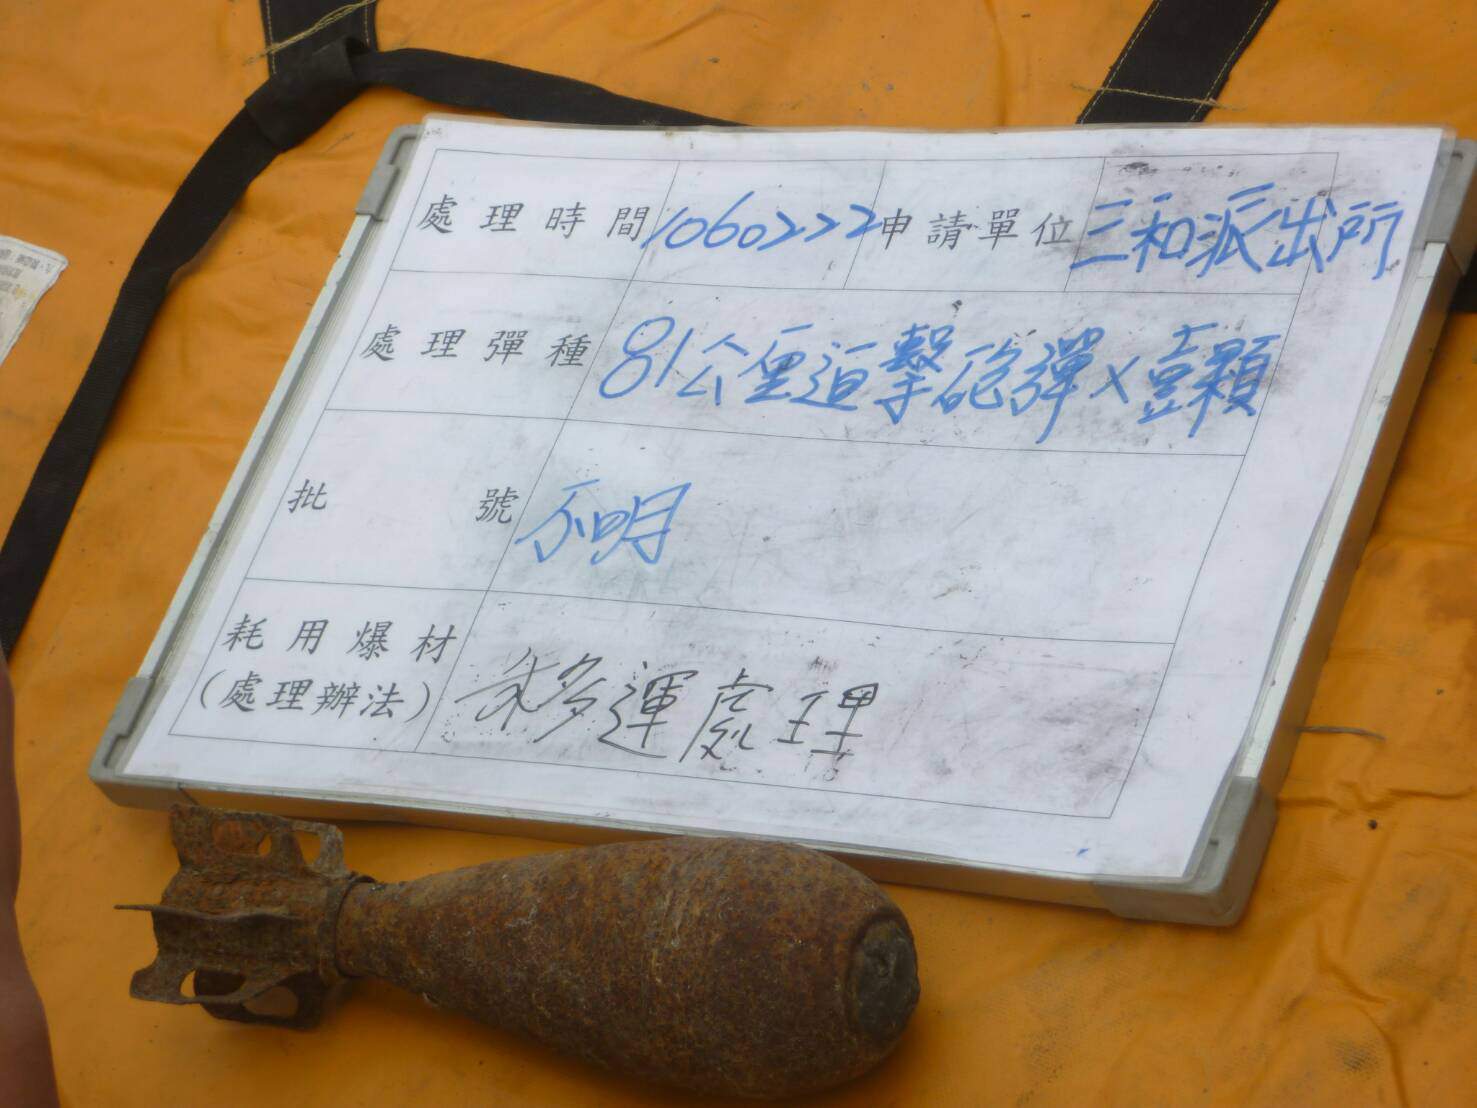 處理時間 1060222 申請單位 三和派出所
處理彈種 81公厘迫擊砲彈×壹顆
批號 不明
耗用爆材
(處理辦法) 移運處理